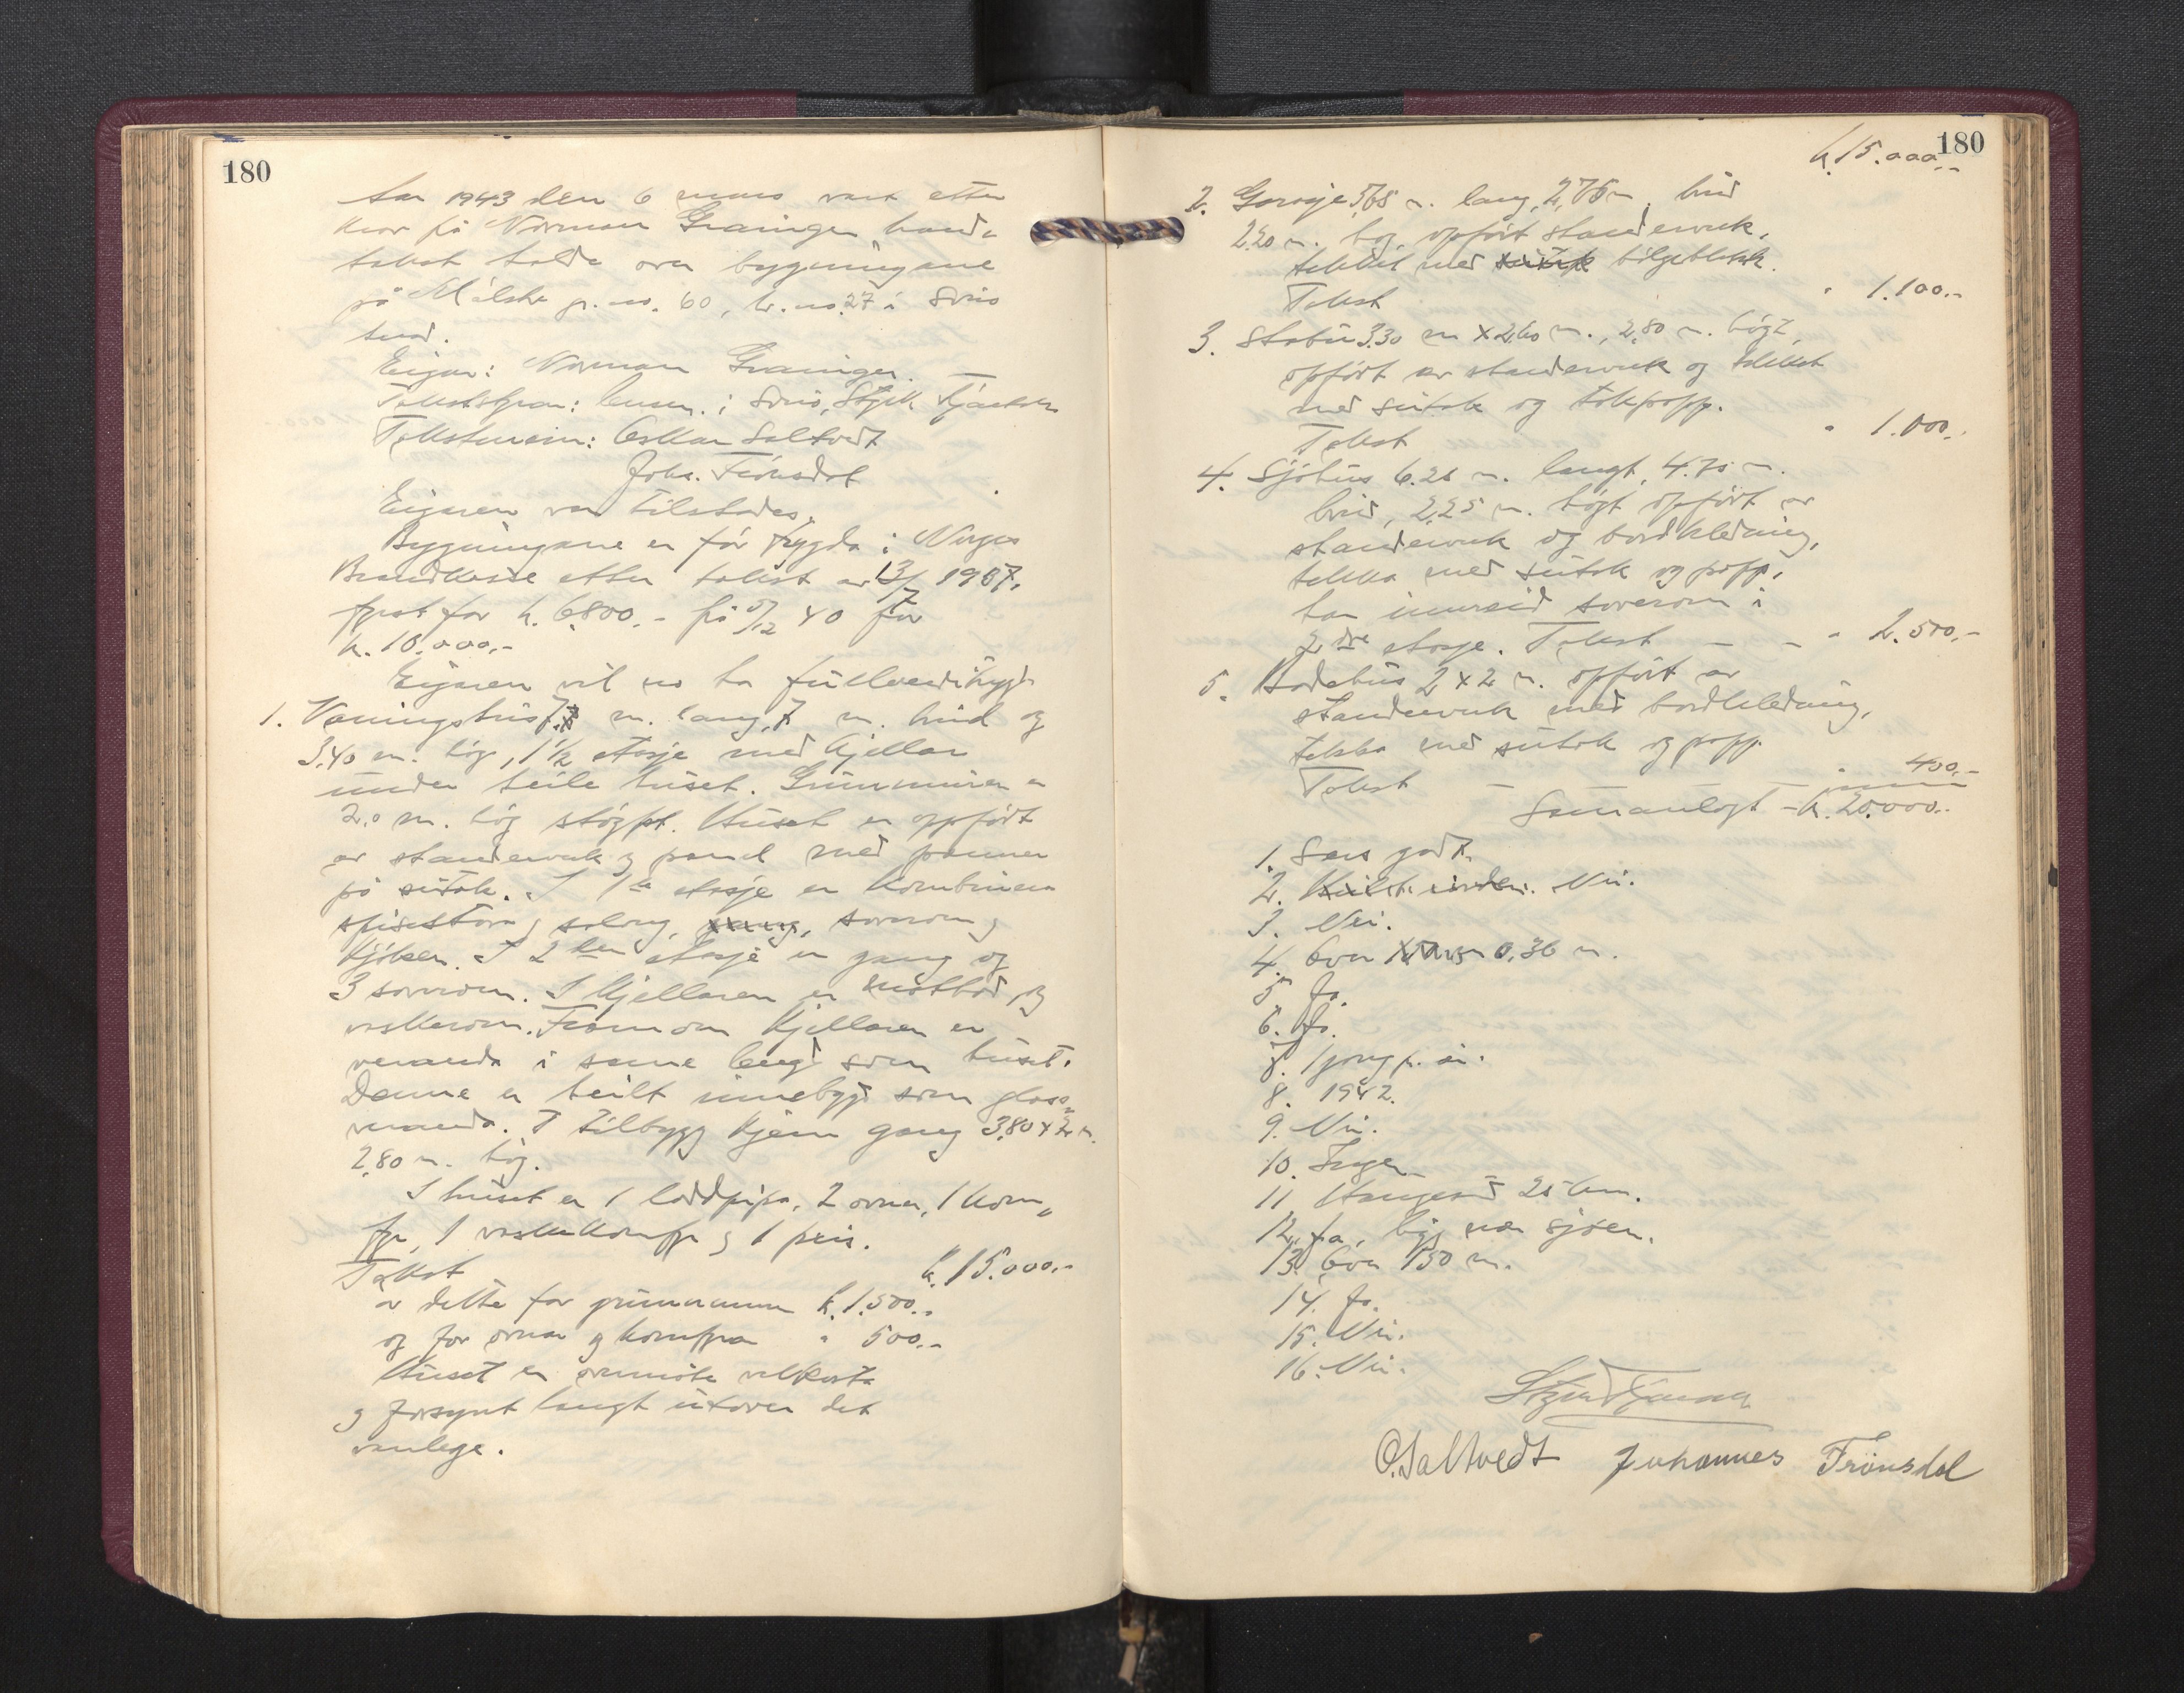 180
År 1943 den 6 mars vart etter
krav på Norman Grainger brand-
takst halde over bygningane
på Målshe g. no. 60, br. no. 27 i Sveio
herad.
Eigar: Norman Grainger.
Takstskjøn: lensm. i Sveio,
Takstmenn: Oskar Saltvedt
Johs. Trönsdal
Eigaren var tilstades.
Bygningane er för trygda i Norges
Brandkasse etter takst av 13/7 1937,
fyrst for k. 6.800.- på 5/12 40 for
k. 10.000,-
Eigaren vil no ha fullverditrygd
1. Våningshus m. lang, 7 m. breid og
3.40 m. høg, 1 1/2 etasje med kjellar
under heile huset. Grunnmuren er
2.0 m. høg støypt. Huset er oppfört
av standerverk og panel med panner
på sutak. I 1ste etasje er kombinera
spisestova og salong, soverom og
kjöken. I 2den etasje er gang og
3 soverom. I kjellaren er matbod og
vaskerom. Framom kjellaren er
veranda i same lengd som huset.
Denne er heilt innebygt som glas-
veranda. I tilbygg kjem gang 3,80 x 2 m.
2,80 m. høg.
I huset er 1 loddpipa, 2 ovner, 1 kom-
fyr, 1 vaskekomfyr og 1 peis.
Takst k. 15.000.-
av dette for grunnmur k. 1.500.-
og for ovnar og komfyra " 500.-
Huset er
og forsynt langt utover det
vanlege.
180
k. 15.000.-
2. Garasje 5,65 m. lang, 2,75 m. breid
2.20 m. høg, oppfört standerverk,
tekket med bölgeblekk.
Takst " 1.100.-
3. Stabu 3.30 m x 2.60 m., 2,80 m. högt,
oppfört av standerverk og tekket
med sutak og takpapp.
Takst " 1.000.-
4. Sjöhus 6.25 m. langt, 4.70 m.
breid, 2,25 m. högt oppfört av
standerverk og bordkledning,
tekka med sutak og papp.
har innreid soverom i
2dre etasje. Takst - - " 2.500.-
5. Badehus 2 x 2 m. oppfört av
standerverk med bordkledning,
tekka med sutak og papp.
Takst - " 400.-
Samanlagt - k. 20.000.-
1. Sers godt.
2. Nei.
3. Nei.
4. Over 0.36 m.
5. Ja.
6. Ja.
7. 1 gong p. år.
8. 1942.
9. Nei.
10. Ingen
11. Haugesund 25 km.
12. Ja, ligg nær sjøen.
13. Over 150 m.
14. Ja.
15. Nei.
16. Nei.
O. Saltvedt Johannes Trönsdal